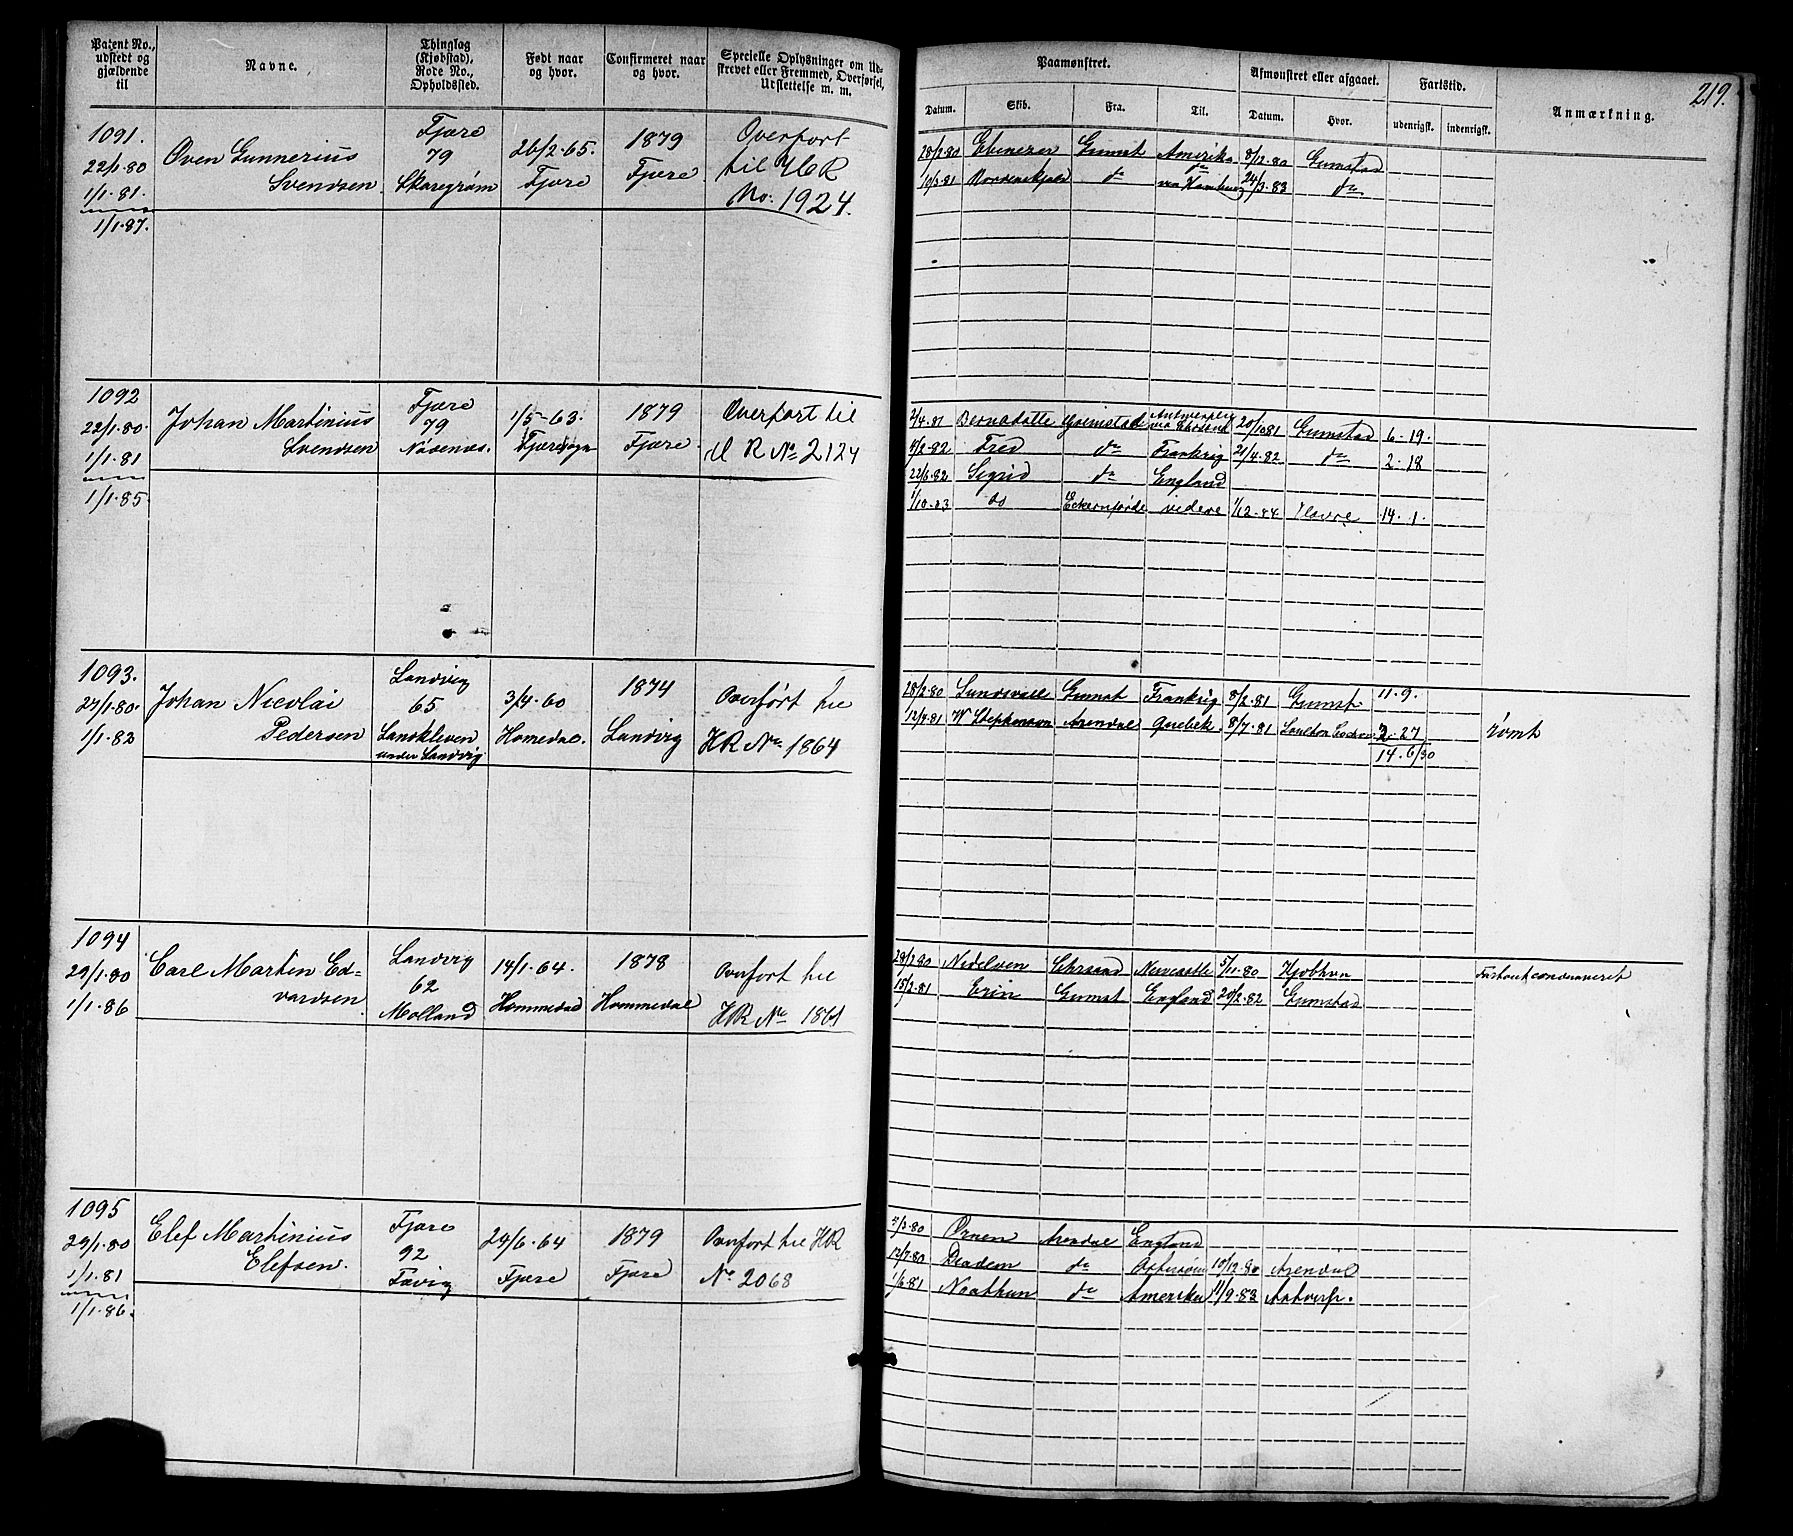 Patent No., udstedt og gjældende til
Navne.
Thinglag (Kjøbstad), Rode No., Opholdssted.
Født naar og hvor.
Confirmeret naar og hvor.
Specielle Oplysninger om Udskrevet eller Fremmed, Overførsel, Udslettelse m. m.
Paamønstret.
Datum. Skib. Fra. Til.
Afmønstret eller afgaaet.
Datum. Hvor.
Fartstid.
udenrigsk. indenrigsk.
Anmærkning.
219.
1091.
22/1·80
1/1·81.
1/1·87.
Oven Gunnerius
Svendsen
Fjære
79
Skaregrøm
26/2·65.
Fjære
1879
Fjære
Overført
til HR
No: 1924.
28/2·80 Ebenezer Grmst Amerika 8/12·80 Grmstad
10/3·81 Nordenskjold do via Hamburg 24/3·83 do
1092
22/1·80·
1/1·81
1/1·85·
Johan Martinius
Svendsen
Fjære
79
Nøsenæs.
1/5-63·
Fjæresogn
1879
Fjære
Overført til
H R No 2124
2/4·81 Bernadotte Grimstad Antwerpen 20/10 81 Grmstad 6·19.
8/2·82 Fred do Frankrig 21/4·82 do 2·18
22/6·82 Sigrid do England
1/10·83 do Eckernförde videre 1/12·84· Havre 14·1·
1093.
27/1·80·
1/1·83
Johan Nicolai
Pedersen
Landvig
65
Landkleven
under Landvig
3/4·60
Homedal
1874
Landvig
Overført til
HR No 1864
28/2·80 Sundsvall Grmst Frankrig 8/2·81 Grmst 11·9.
12/4·81 W Stephenson Arendal Quebek 8/7·81 2·27 rømt
14·6/30
1094
29/1·80
1/1·86
Carl Martin Ed-
vardsen
Landvig
62
Molland
14/1·64·
Hommedal
1878
Hommedal
Overført til
HR No 1861
28/2·80 Nidelven Chrsand Newcastle 5/11·80 Kjøbhvn condemneret
15/2·81 Erin Grmst England 20/2·82 Grmstad
1095
29/1·80
1/1·81
1/1·86·
Elef Martinius
Elefsen.
Fjære
92
Fævig
29/6·64
Fjære
1879
Fjære
Overført til HR
No 2068
/3·80 Ørnen Arendal England
12/7·80 Diadem do Østersøen 10/12·80 Arendal
1/6·81 Noathun do Amerika 11/9·83 Antverp.